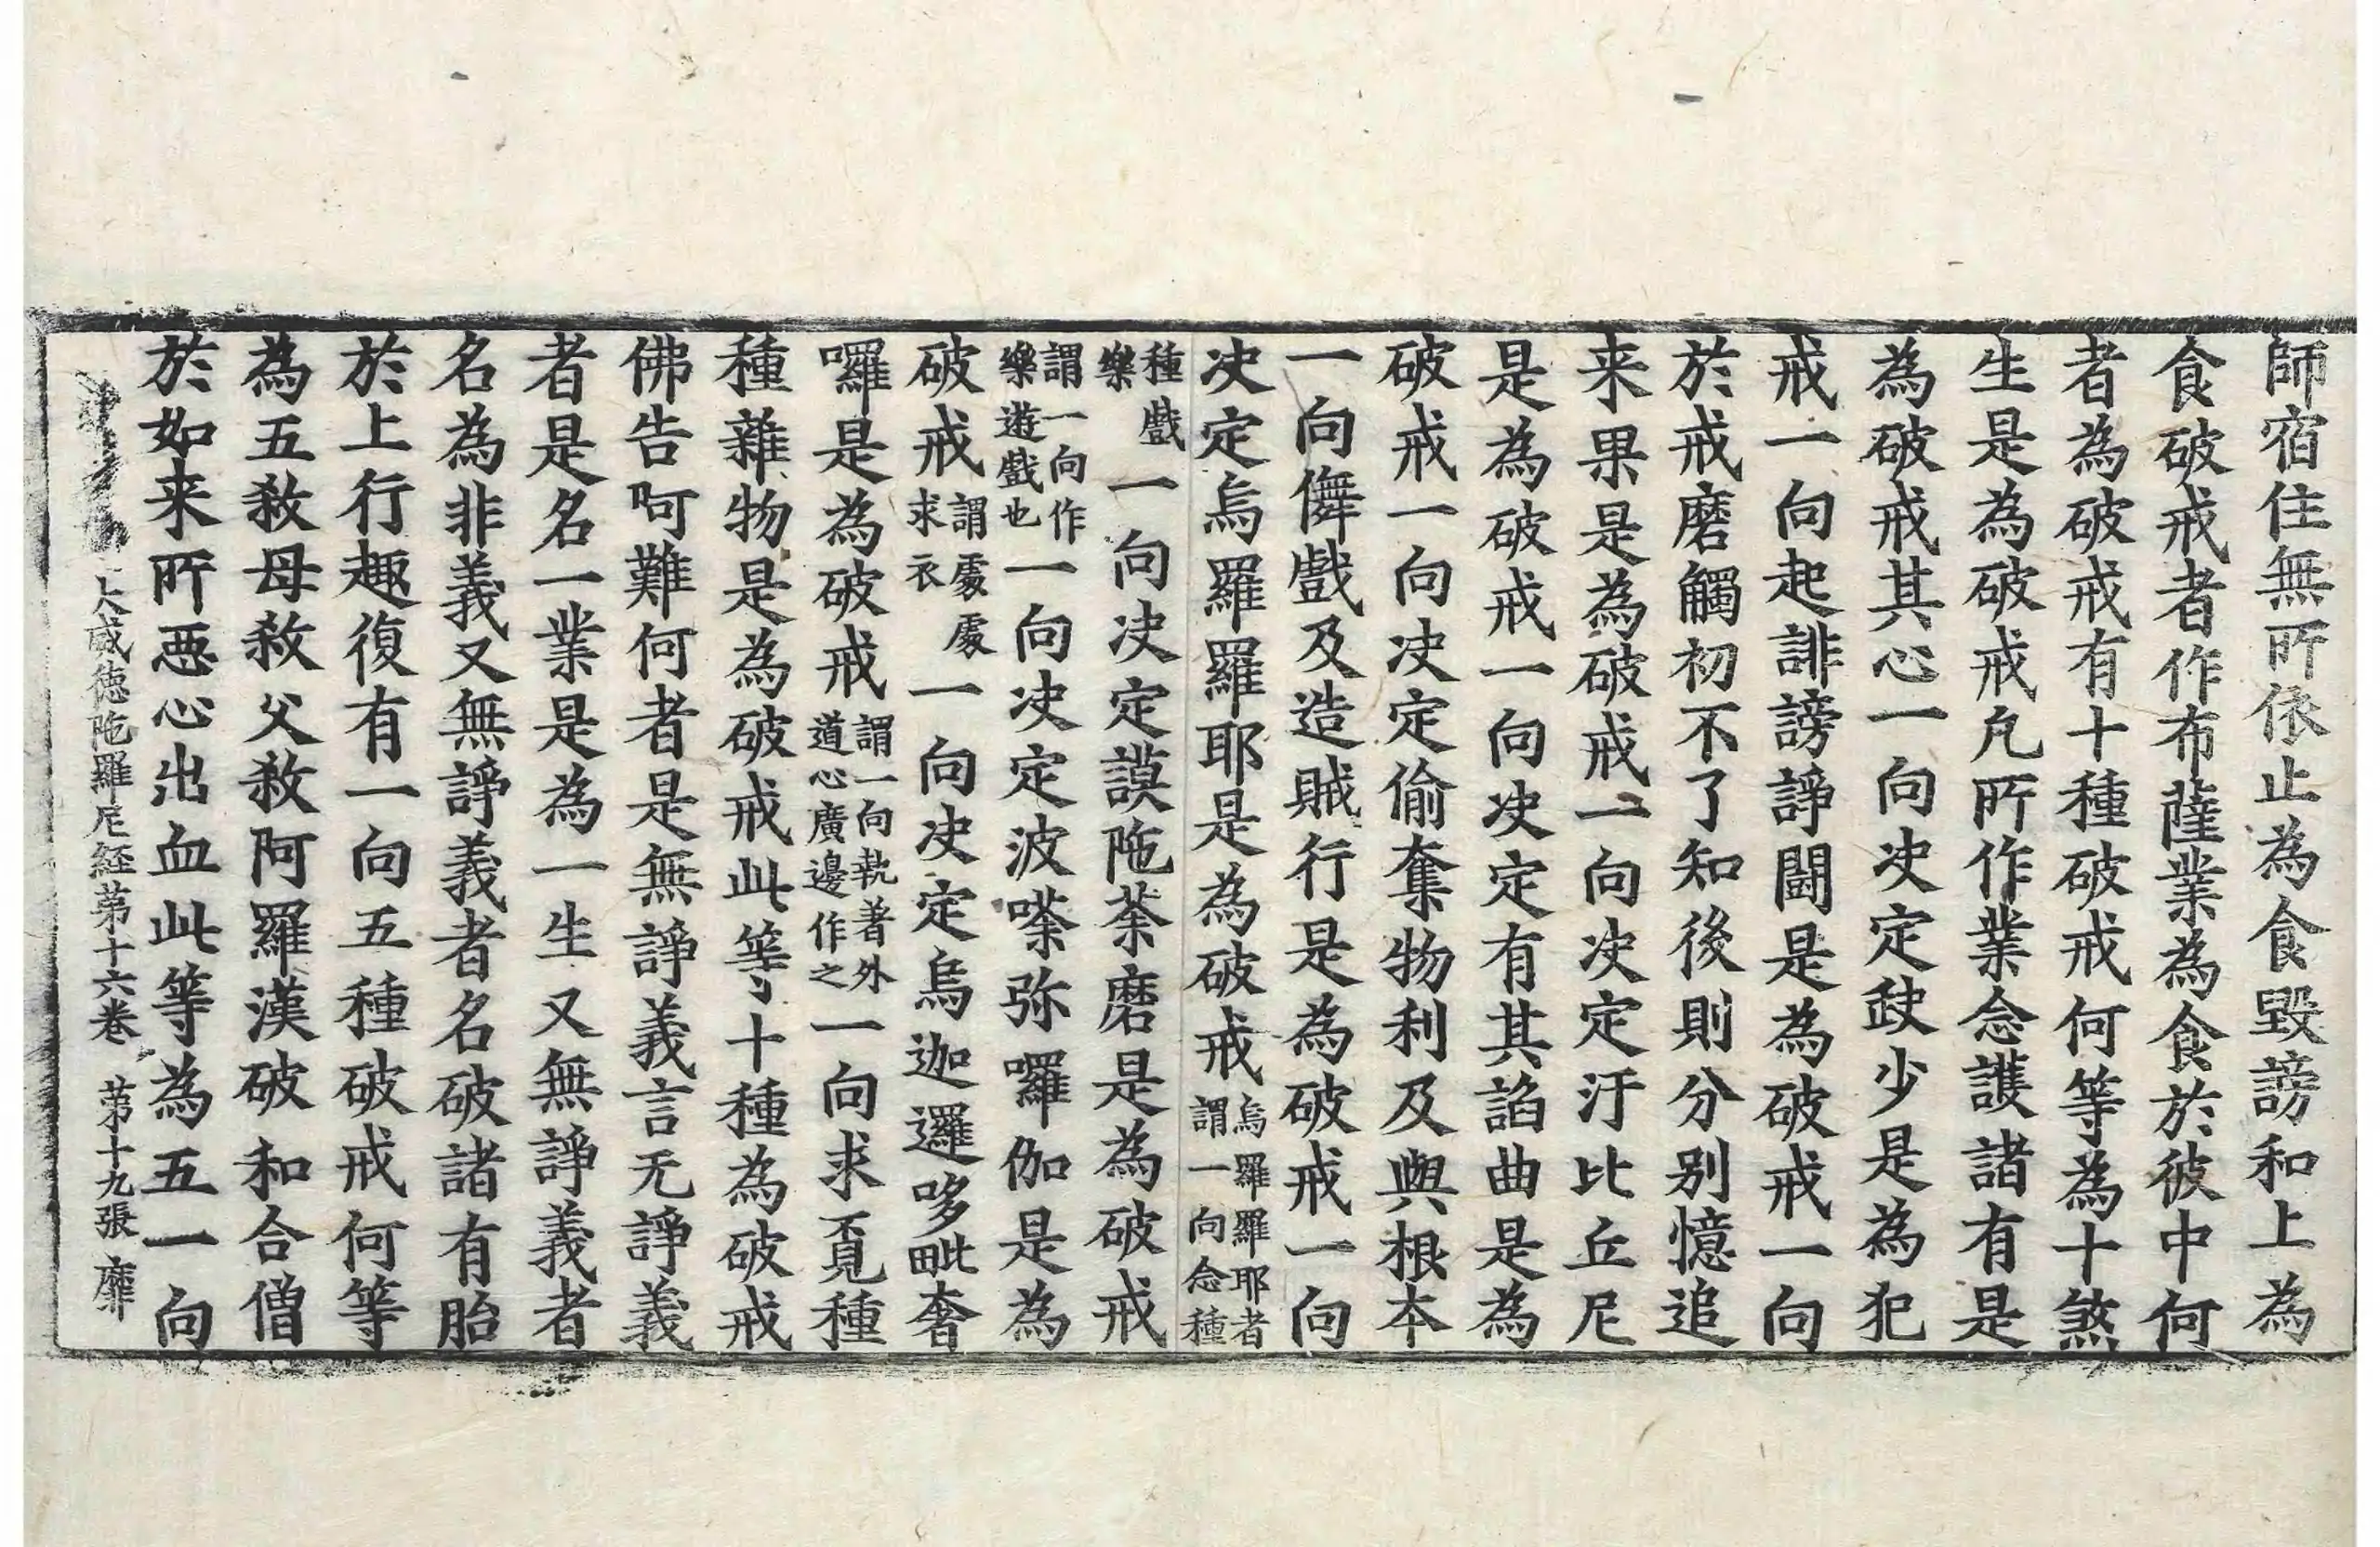 師宿住無所依止為食毀謗和上為
食破戒者作布薩業為食於彼中何
者為破戒有十種破戒何等為十煞
生是為破戒凡所作業念護諸有是
為破戒其心一向决定𡙇少是為犯
戒一向起誹謗諍鬪是為破戒一向
於戒磨觸初不了知後則分別憶追
来果是為破戒一向决定汙比丘尼
是為破戒一向决定有其諂曲是為
破戒一向决定偷奪物利及與根本
一向儛戲及造賊行是為破戒一向
决定烏羅羅耶是為破戒烏羅羅耶者謂一向念種
種戲樂一向决定謨陁荼磨是為破戒
謂一向作樂遊戲也一向决定波嗏弥囉伽是為
破戒謂處處求衣一向决定烏迦邏哆毗奢
囉是為破戒謂一向執著外道心廣邊作之一向求覔種
種雜物是為破戒此等十種為破戒
佛告呵難何者是無諍義言无諍義
者是名一業是為一生又無諍義者
名為非義又無諍義者名破諸有胎
於上行趣復有一向五種破戒何等
為五煞母煞父煞阿羅漢破和合僧
於如来所惡心出血此等為五一向
大威德陁羅尼経苐十六卷　苐十九張　靡